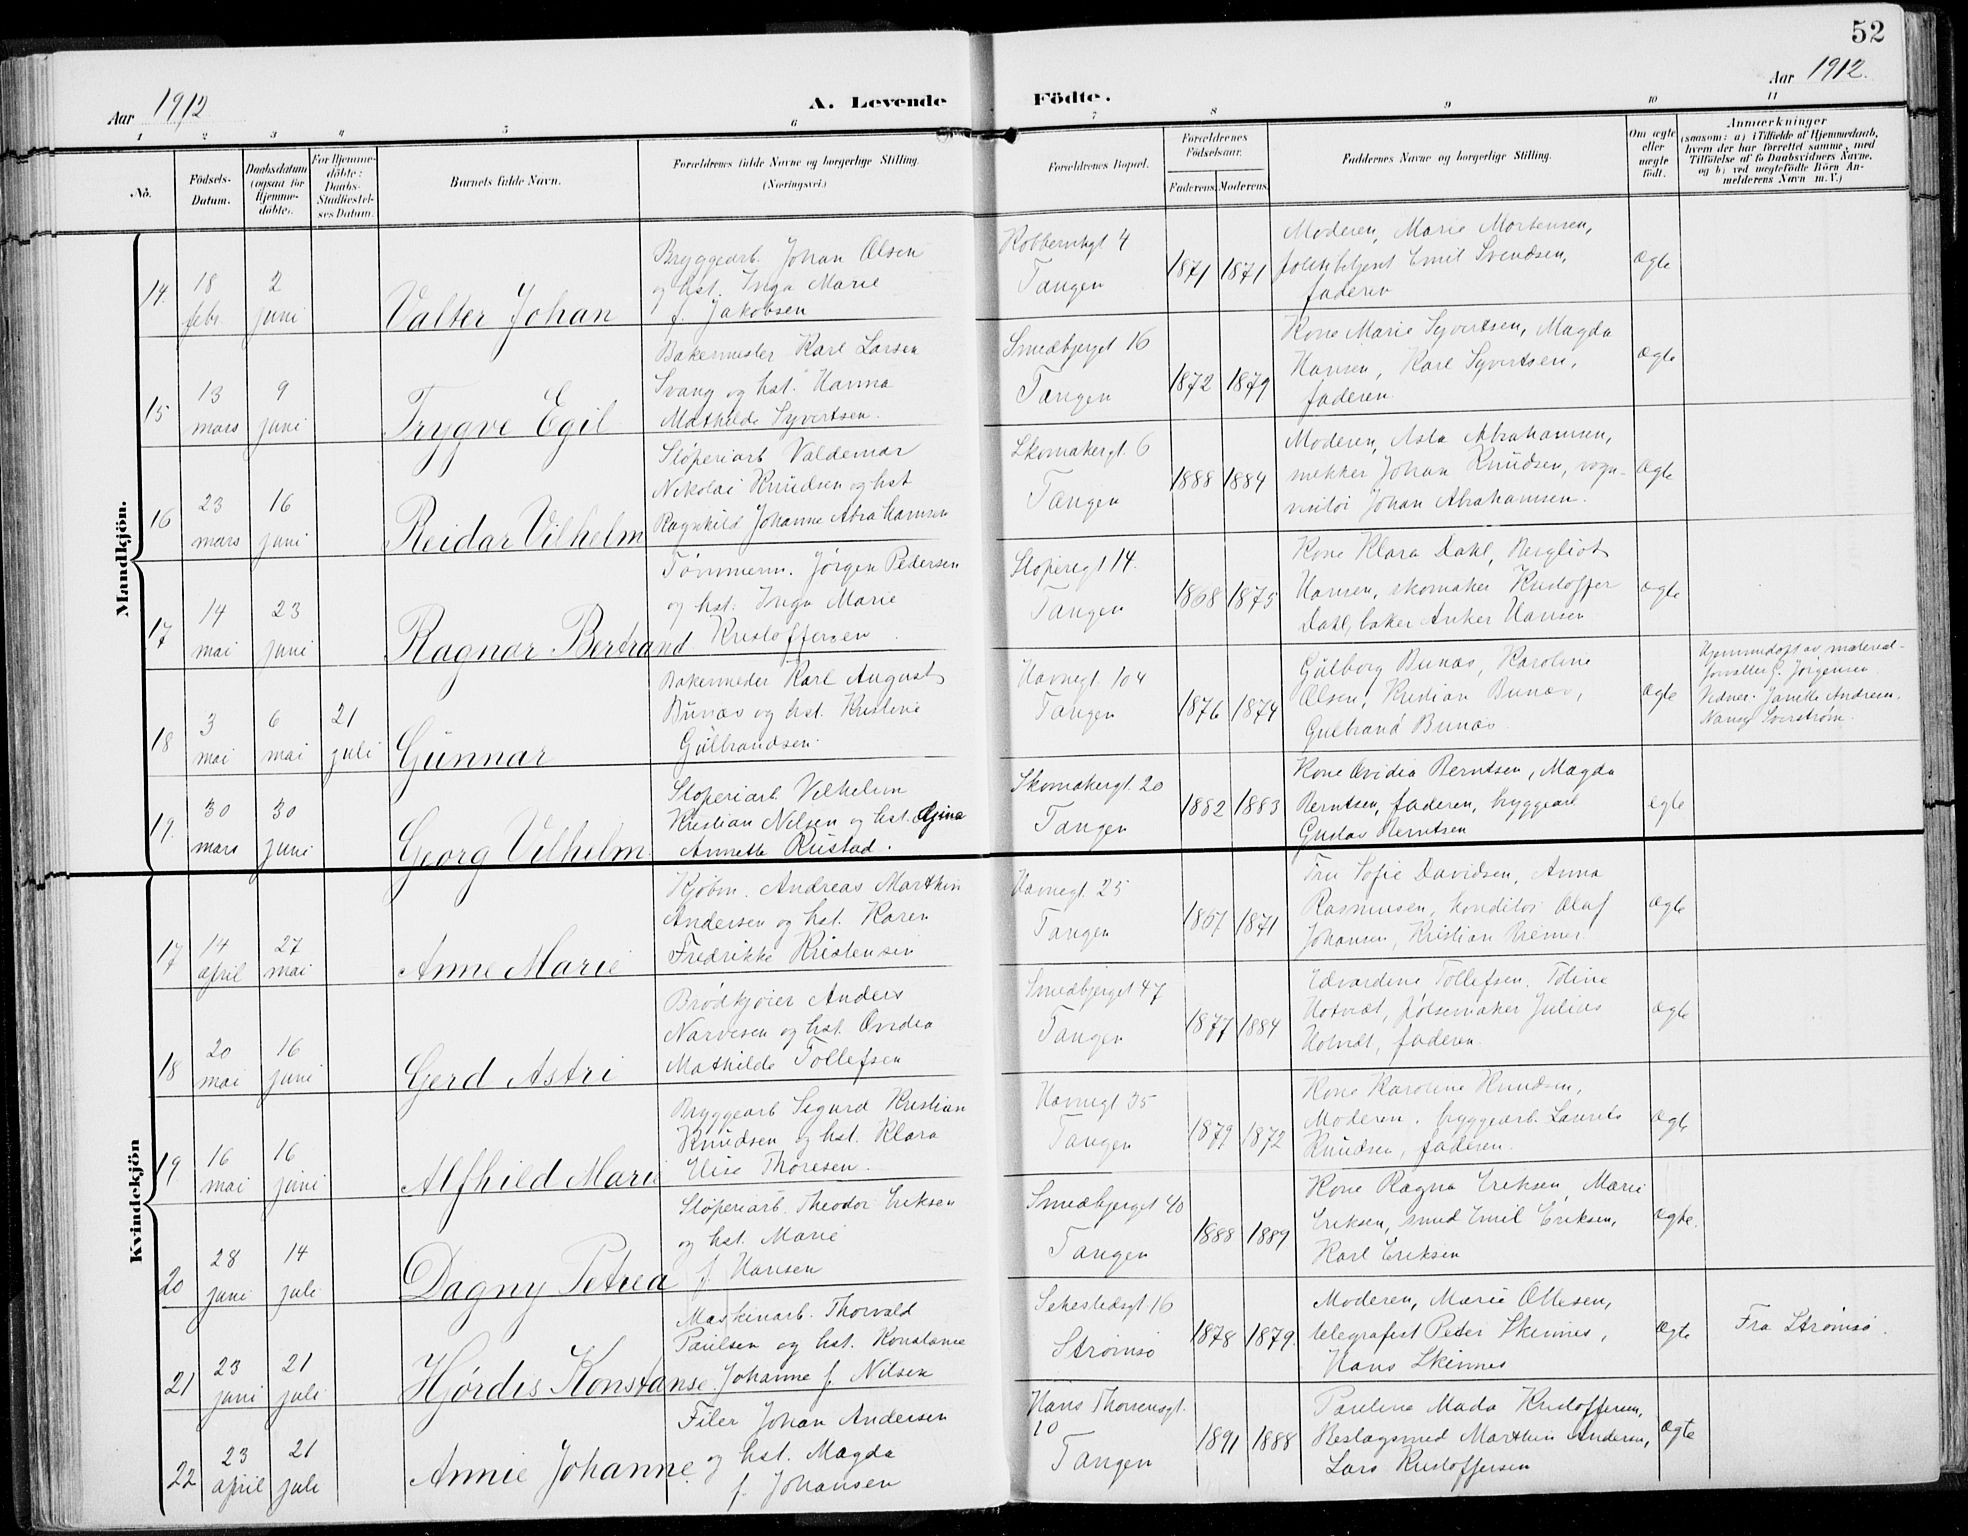 52
Aar 1912
A. Levende Födte.
Aar 1912.
1 2 3 4 5 6 7 8 9 10 11
No.
Födsels-Datum.
Daabsdatum (ogsaa for Hjemme-döbte).
For Hjemme-döbte: Daabs-Stadfæstel-ses Datum.
Barnets fulde Navn.
Forældrenes fulde Navne og borgerlige Stilling. (Næringsvei.)
Forældrenes Bopæl.
Forældrenes Födselsaar.
Faderens. Moderens.
Faddernes Navne og borgerlige Stilling.
Om ægte eller uægte födt.
Anmærkninger (saasom: a) i Tilfælde af Hjemmedaab, hvem der har forrettet samme, med Tilföielse af to Daabsvidners Navne, og b) ved uægtefödte Börn An-melderens Navn m. V.)
Mandkjön.
14. 18 febr. 2 juni
Valter Johan
Bryggearb. Johan Olsen
og hst. Inga Marie
f. Jakobsen
Tangen
1871 1871
Moderen, Marie Mortensen,
politibetjent Emil Svendsen,
faderen
ægte
15 13 mars 9 juni
Trygve Egil
Bakermester Karl Larsen
Svang og hst. Hanna
Mathilde Syvertsen.
Smedbjerget 16
Tangen
1872 1879
Kone Marie Syvertsen, Magda
Hansen, Karl Syvertsen,
faderen.
ægte
16 23 mars 16 juni
Reidar Vilhelm
Sløperiarb Valdemar
Nikolai Knudsen og hst
Ragnhild Johanne Abrahamsen
Skomakergt 6
Tangen
1888 1884
Moderen, Asta Abrahamsen,
snekker Johan Knudsen, vogn-
visitør Johan Abrahamsen.
ægte
17 14 mai 23 juni
Ragnar Bertrand
Tømmerm. Jørgen Pedersen
og hst. Inga Marie
Kristoffersen
Sloperigt 14.
Tangen
1868 1875
Kone Klara Dahl, Bergliot
Hansen, skomaker Kristoffer
Dahl, baker Anker Hansen
ægte
18 3 mai 6 mai 21 juli
Gunnar
Bakermester Karl August
Bunæs og hst. Kristine
Gulbrandsen.
Havnegt 104
Tangen
1876 1874
Gulborg Bunæs, Karoline
Olsen, Kristian Bunæs,
Gulbrand Bunæs.
ægte
Hjemmedøpt av material-
forvalter G. Jørgensen
Vidner: Janette Andresen,
Nanny
19. 30 mars 30 juni
Georg Vilhelm
Sloperiarb. Vilhelm
Kristian Nilsen og hst. Agina
Annette Rustad.
Skomakergt. 20
Tangen
1882 1883
Kone Ovidia Berntsen, Magda
Berntsen, faderen, bryggearb
Gustav Berntsen
ægte
Kvindekjön
17 14 april 27 mai
Anne Marie
Kjøbm. Andreas Marthin
Andersen og hst. Karen
Fredrikke Kristensen
Havnegt. 25
Tangen
1867 1871
Fru Sofie Davidsen, Anna
Rasmussen, konditor Olaf
Johansen, Kristian
ægte
18 20 mai 16 juni
Gerd Astri
Brødkjører Anders
Narvesen og hst. Ovidia
Mathilde Tollefsen
Smedbjerget 47
Tangen
1877 1884
Edvardine Tollefsen. Toline
Hotvedt, pølsemaker Julius
Hotvedt, faderen.
ægte
19 16 mai 16 juni
Alfhild Marie
Bryggearb Sigurd Kristian
Knudsen og hst. Klara
Elise Thoresen.
Havnegt 35
Tangen
1879 1872
Kone Karoline Knudsen,
Moderen, bryggearb. Laurits
Knudsen, faderen.
ægte
20 28 juni 14 juli
Dagny Petrea
Sloperiarb. Theodor Eriksen
og hst. Marie
f. Hansen
Smedbjerget 40
Tangen
1888 1889
Kone Ragna Eriksen, Marie
Eriksen, smed Emil Eriksen,
Karl Eriksen
ægte.
21 23 juni 21 juli
Hjørdis Konstanse
Maskinarb. Thorvald
Paulsen og hst. Konstanse
Johanne f. Nilsen
Sehestedsgt 16
Strømsø
1878 1879.
Moderen, Marie Ottesen,
telegrafist Peder Skinnes,
Hans Skinnes
ægte
Fra Strømsø.
22 23 april 21 juli
Annie Johanne
Filer Johan Andersen
og hst. Magda
f. Johansen
Hans Thornensgt.
10
Tangen
1891 1888
Pauline Mada Kristoffersen,
Beslagsmed Marthin Andersen,
Lars Kristoffersen
ægte